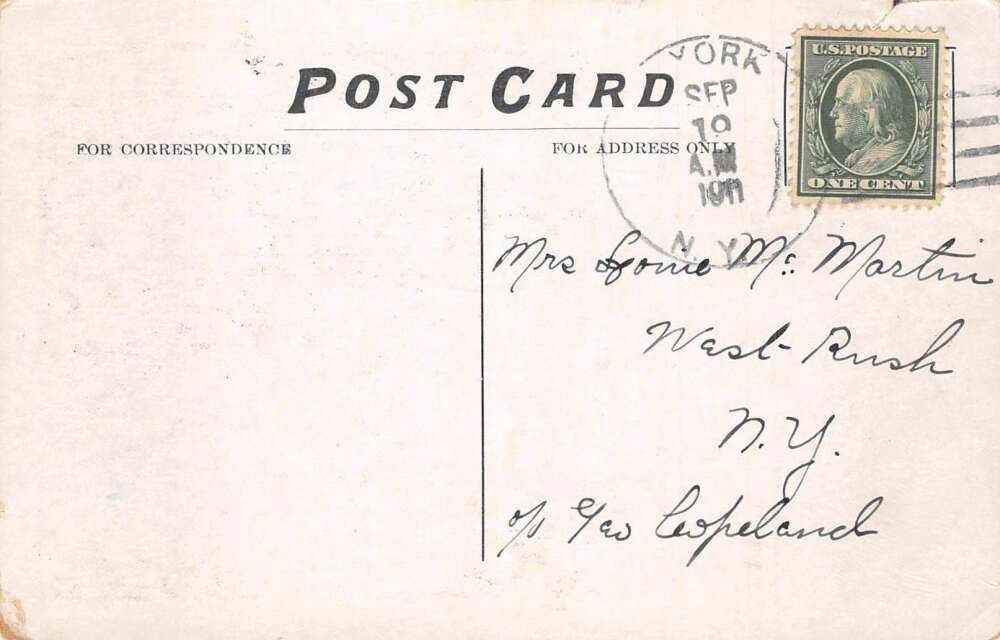 POST CARD
FOR CORRESPONDENCE
FOR ADDRESS ONLY
YORK
SEP
19
A.M
1911
N.Y.
U.S. POSTAGE
ONE CENT
Mrs Mc Martin
West Rush
N.Y.
c/o Geo Copeland